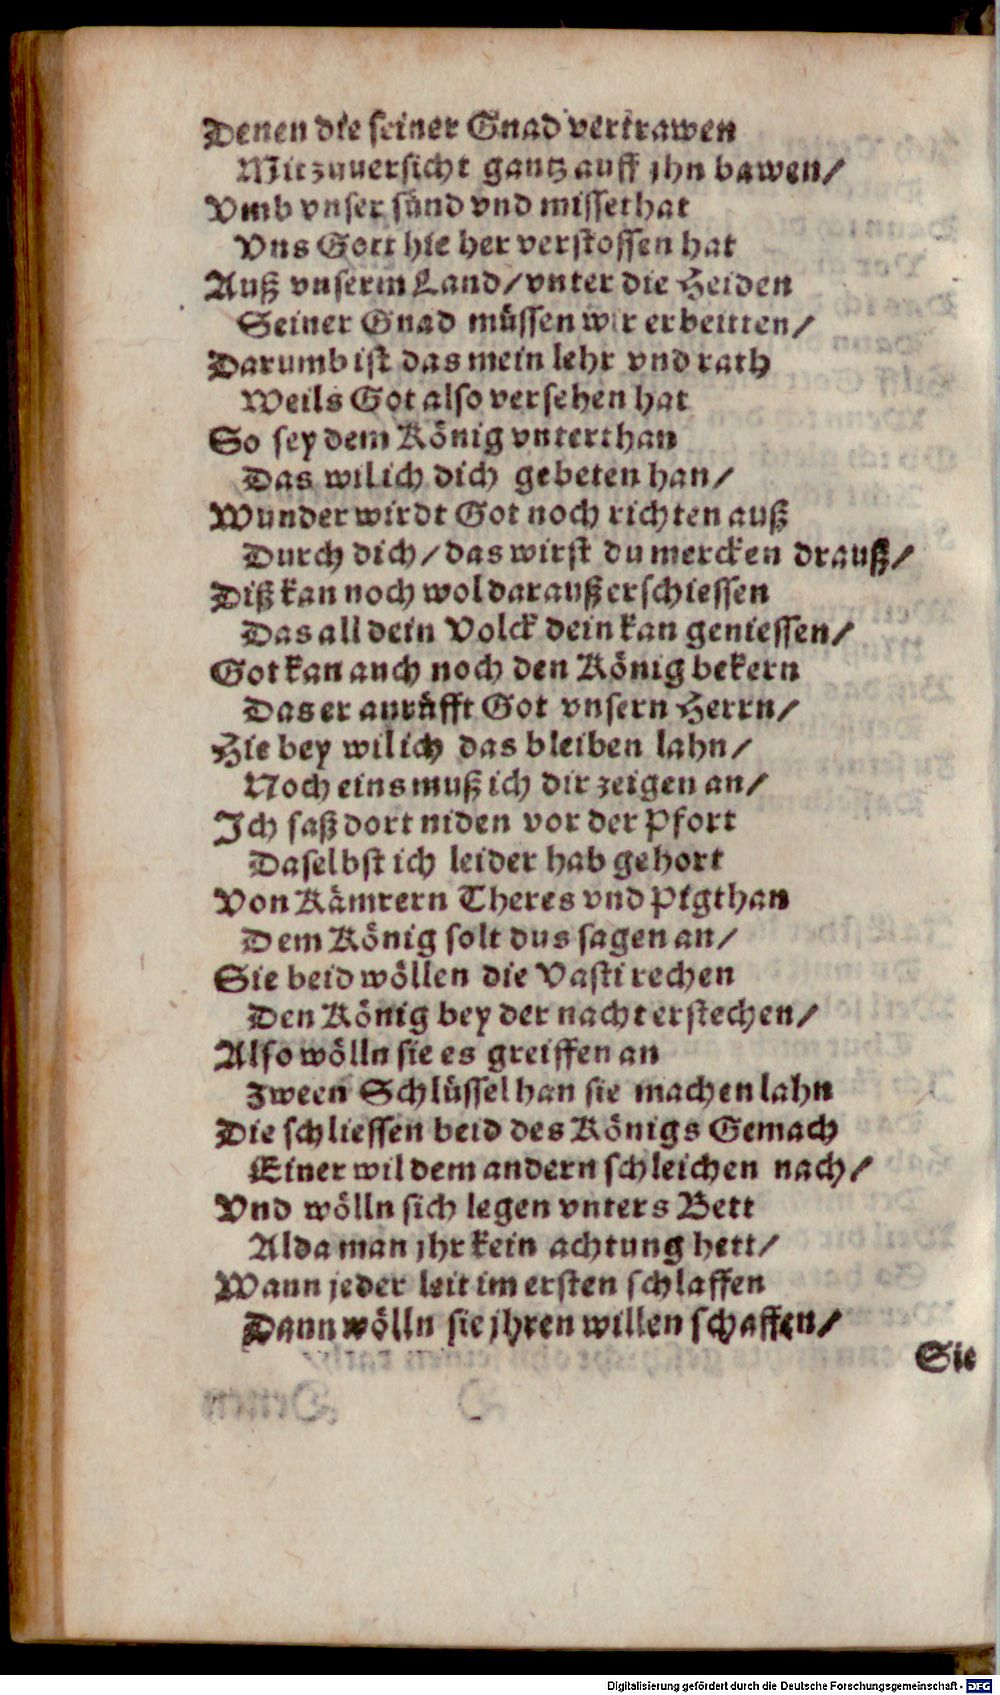 Denen die seiner Gnad vertrawen
Mit zuuersicht gantz auff jhn bawen/
Vmb vnser sünd vnd missethat
Vns Gott hie her verstossen hat
Auß vnserm Land/ vnter die Heiden
Seiner Gnad müssen wir erbeitten/
Darumb ist das mein lehr vnd rath
Weils Got also versehen hat
So sey dem König vnterthan
Das wil ich dich gebeten han/
Wunder wirdt Got noch richten auß
Durch dich/ das wirst du mercken drauß/
Diß kan noch wol darauß erschiessen
Das all dein Volck dein kan geniessen/
Got kan auch noch den König bekern
Das er anrüfft Got vnsern Herrn/
Hie bey wil ich das bleiben lahn/
Noch eins muß ich dir zeigen an/
Ich saß dort niden vor der Pfort
Daselbst ich leider hab gehort
Von Kämrern Theres vnd Pigthan
Dem König solt dus sagen an/
Sie beid wöllen die Vasti rechen
Den König bey der nacht erstechen/
Also wölln sie es greiffen an
Zween Schlüssel han sie machen lahn
Die schliessen beid des Königs Gemach
Einer wil dem andern schleichen nach/
Vnd wölln sich legen vnters Bett
Alda man jhr kein achtung hett/
Wann jeder leit im ersten schlaffen
Dann wölln sie jhren willen schaffen/
Sie
Digitalisierung gefördert durch die Deutsche Forschungsgemeinschaft - DFG